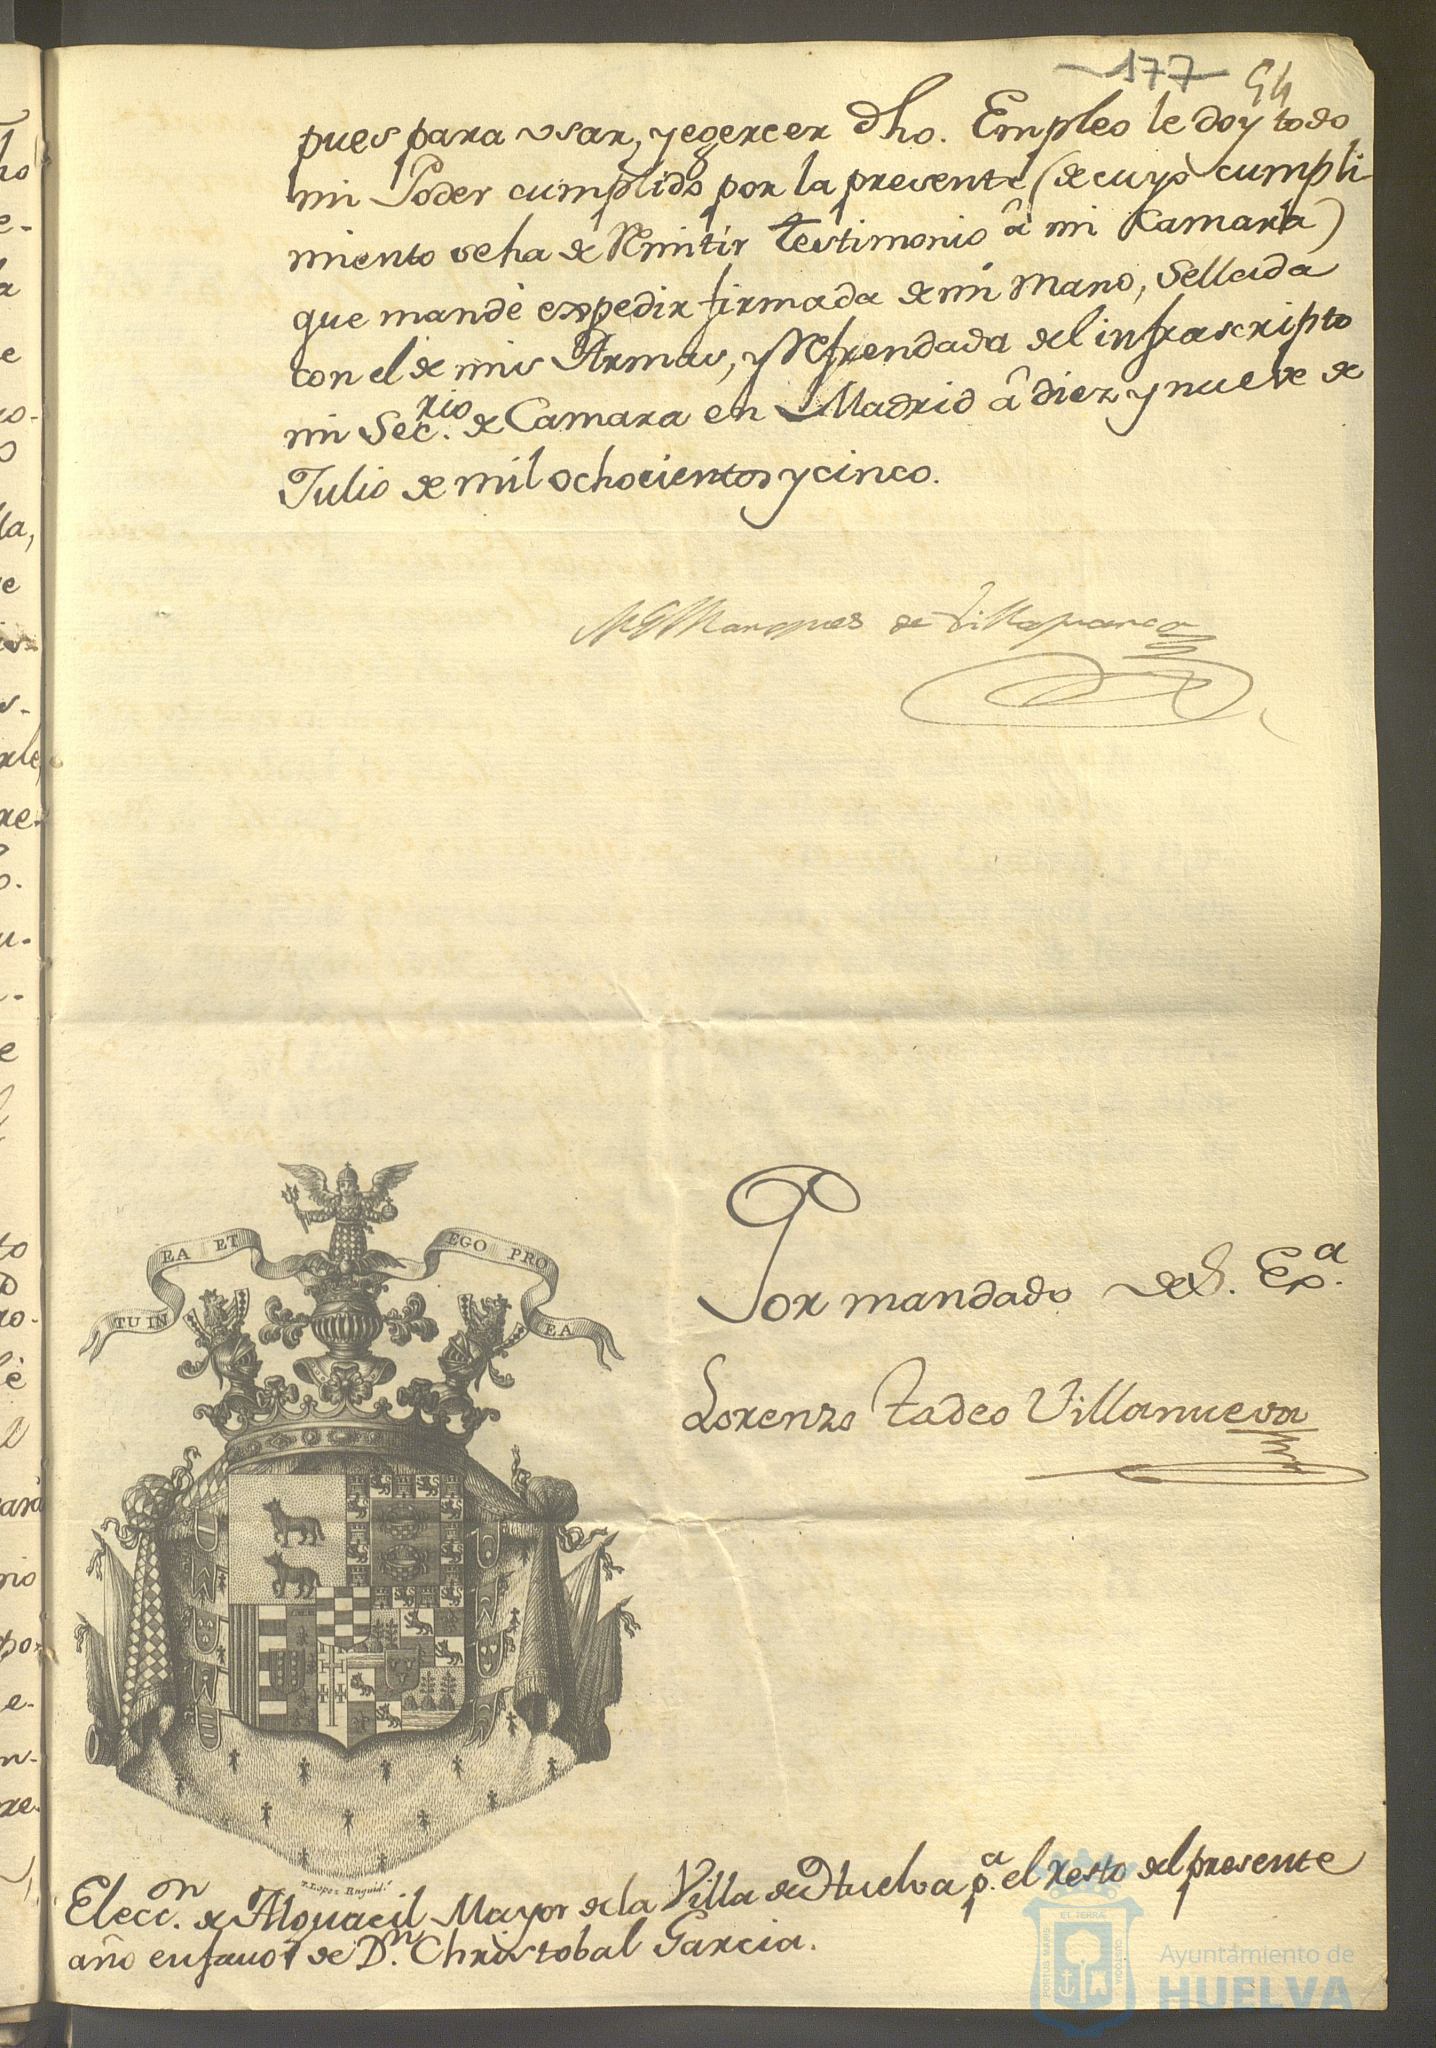 177 54
pues para usar, y egercer dho. Empleo le doy todo
mi Poder cumplido por la presente (de cuyo cumpli
miento se ha de Remitir Testimonio â mi Camara)
que mandé expedir firmada de mi Mano, Sellada
con el de mis Armas, y Refrendada del infrascripto
mi Sec.rio de Camara en Madrid â diez y nueve de
Julio de mil ochocientos y cinco.
Marques de Villafranca
TU IN EA ET EGO PRO EA
Por mandado de S. Ex.a
Lorenzo Tadeo Villanueva
Elecc.on de Alguacil Mayor de la Villa de Huelva p.a el resto del presente
año en favor de D.n Christobal Garcia.
Ayuntamiento de
HUELVA